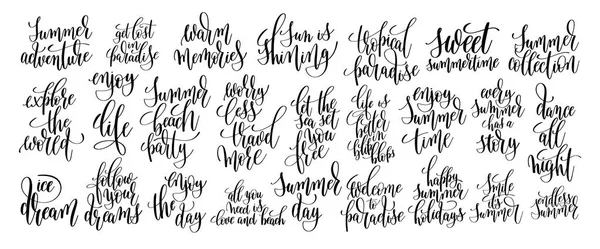 Summer
adventure
get lost
in
paradise
warm
memories
Sun is
shining
tropical
paradise
sweet
summertime
Summer
collection
explore
the
world
enjoy
life
Summer
beach
party
worry
less
travel
more
let the
sea set
you
free
life is
better
in
flip
flops
enjoy
Summer
time
every
summer
has a
story
dance
all
night
ice
dream
follow
your
dreams
enjoy
the
day
all you
need is
love and beach
Summer
day
welcome
to
paradise
happy
summer
holidays
Smile
it's
Summer
endless
summer